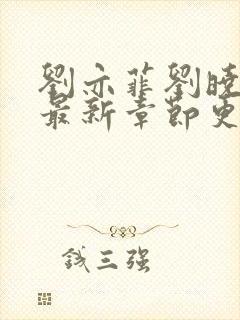 劉亦菲劉曉
最新章節更
錢三强